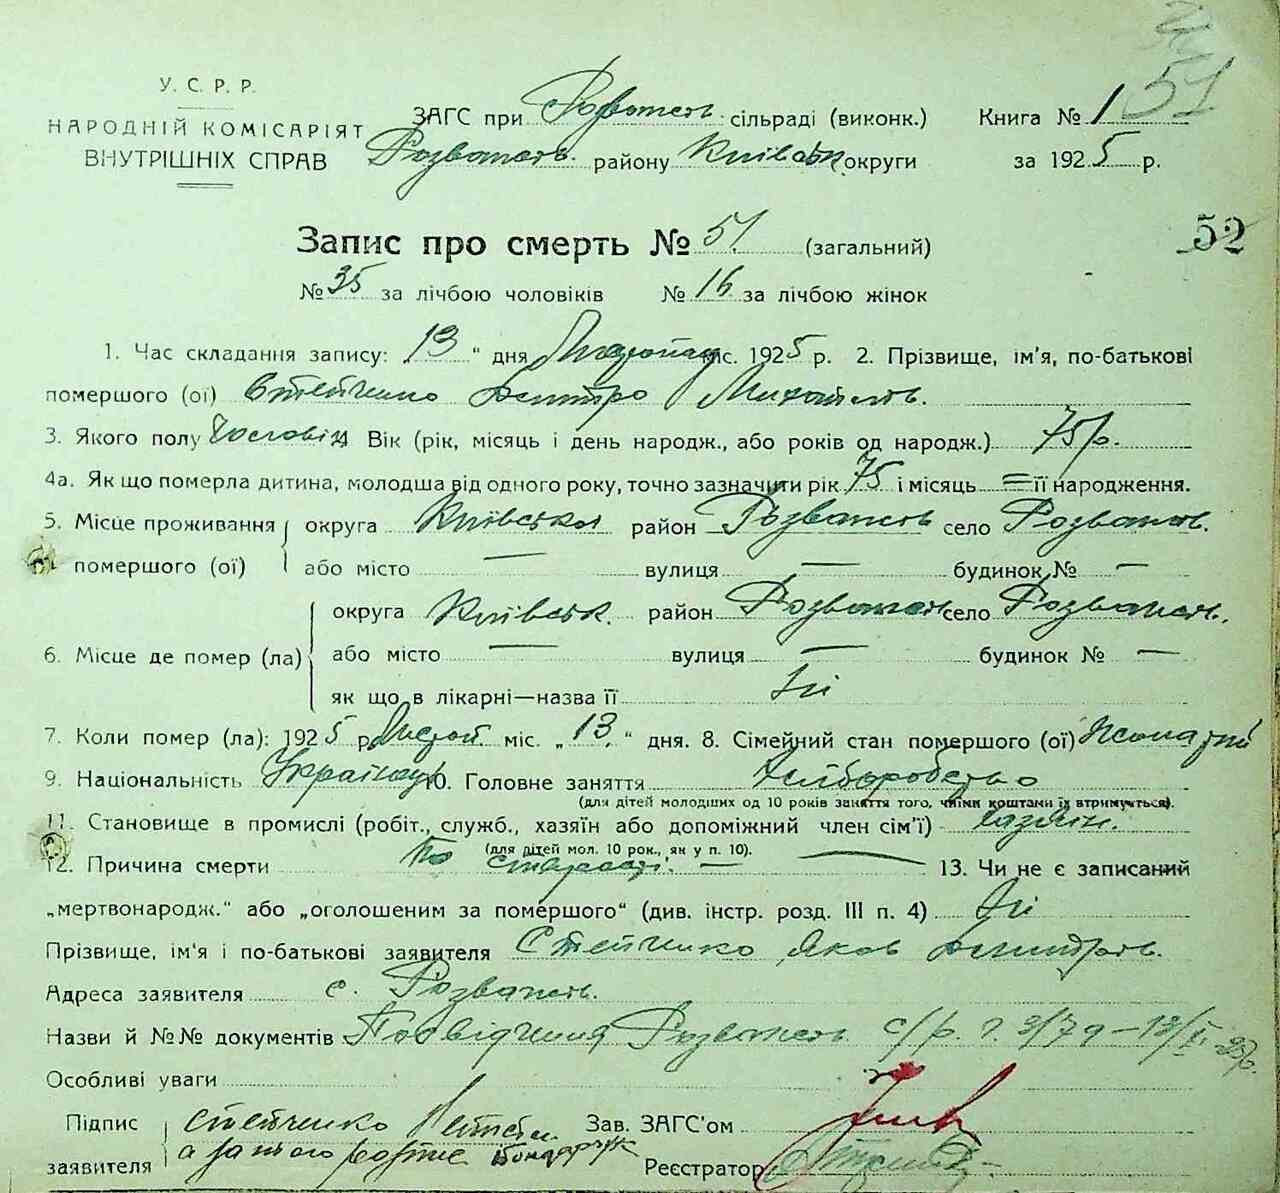 51
У. С. Р. Р.
НАРОДНІЙ КОМІСАРІЯТ
ВНУТРІШНІХ СПРАВ
ЗАГС при Розважев сільраді (виконк.) Книга № 1
Розважев. району Київськ округи за 1925 р.
Запис про смерть № 51. (загальний)
52
№ 35 за лічбою чоловіків № 16 за лічбою жінок
1. Час складання запису: 13 " дня Листопад міс. 1925 р. 2. Прізвище, ім'я, по-батькові
помершого (ої) Стетченко Дмитро Михайлов.
3. Якого полу Чоловіч Вік (рік, місяць і день народж., або років од народж.) 75 р.
4а. Як що померла дитина, молодша від одного року, точно зазначити рік 75 і місяць = її народження.
5. Місце проживання округа Київська район Розважев село Розважев.
помершого (ої) або місто — вулиця — будинок № —
округа Київськ. район Розважев село Розважев.
6. Місце де помер (ла) або місто — вулиця — будинок № —
як що в лікарні—назва її Ні
7. Коли помер (ла): 1925 р. Листоп. міс. „ 13. " дня. 8. Сімейний стан помершого (ої) Жонатий
9. Національність Українець 10. Головне заняття Хліборобство
(для дітей молодших од 10 років заняття того, чиїми коштами їх втримується).
11. Становище в промислі (робіт., служб., хазяїн або допоміжний член сім'ї) хазяїн.
(для дітей мол. 10 рок., як у п. 10).
12. Причина смерти По старості. — 13. Чи не є записаний
„мертвонародж." або „оголошеним за помершого" (див. інстр. розд. III п. 4) Ні
Прізвище, ім'я і по-батькові заявителя Стетченко Яков Дмитров.
Адреса заявителя с. Розважев.
Назви й №№ документів Посвідчення Розважев с/р.
Особливі уваги
Підпис Стетченко Зав. ЗАГС'ом
заявителя а за його Реєстратор